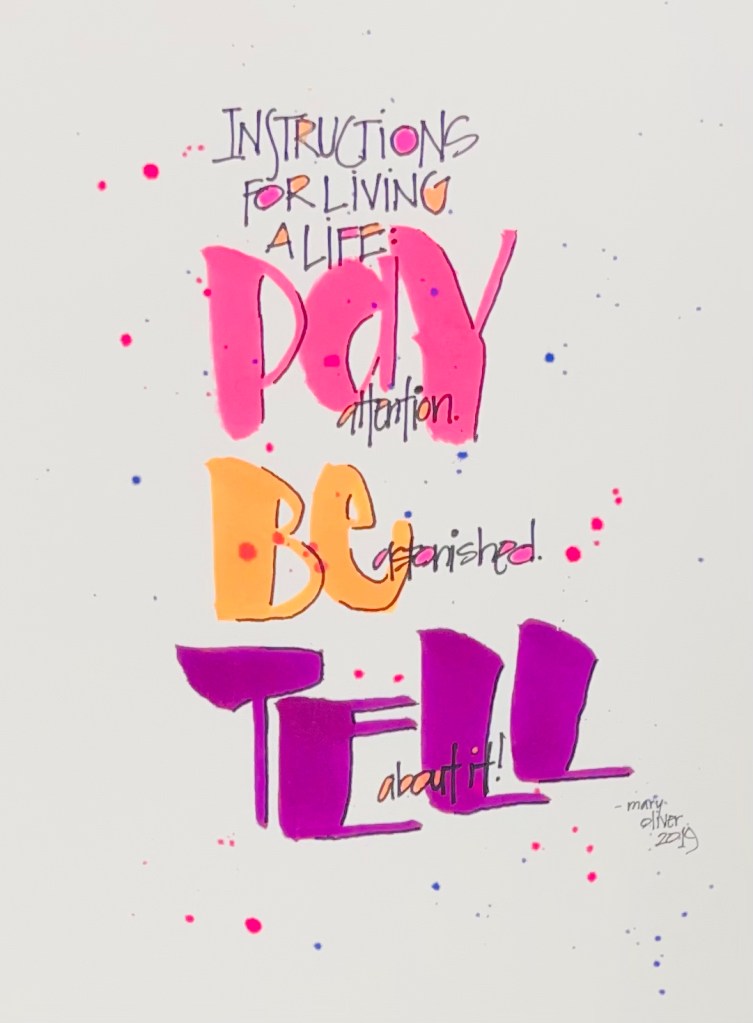 INSTRUCTIONS
FOR LIVING
A LIFE:
PAY
attention.
BE
astonished.
TELL
about it!
- mary
oliver
2019